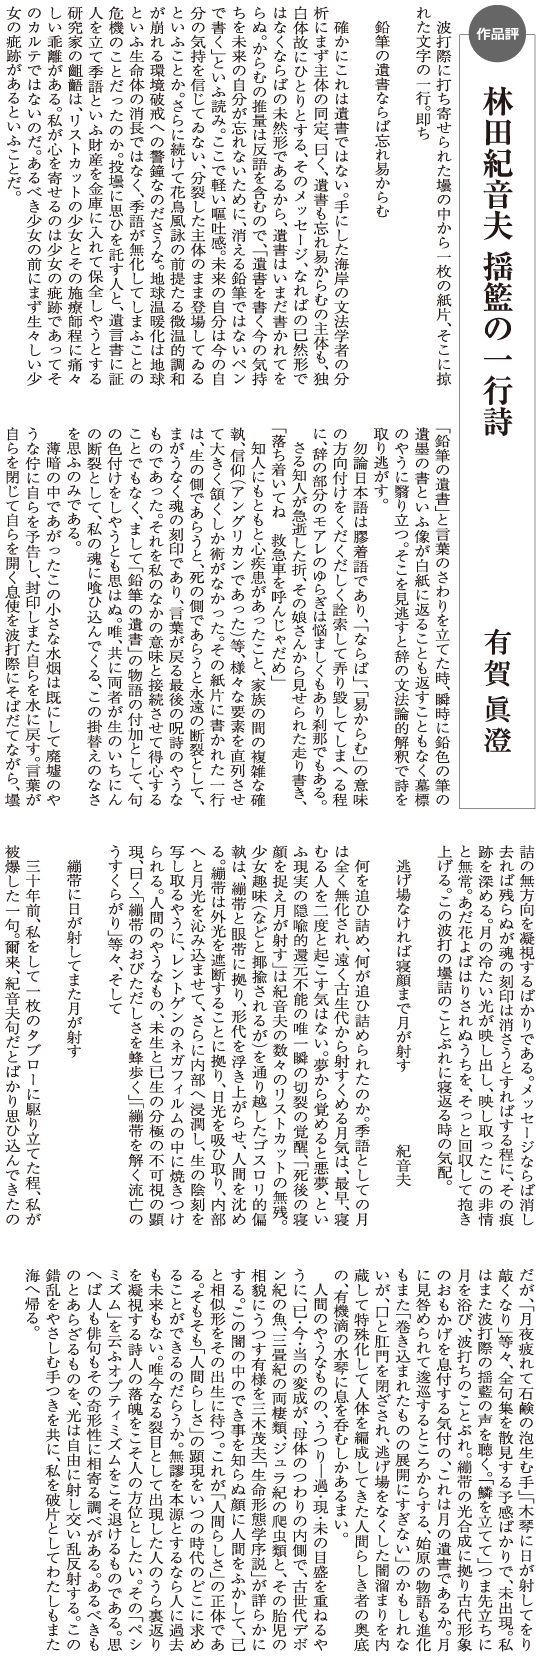 作品評
林田紀音夫 揺籃の一行詩
有賀 眞澄
波打際に打ち寄せられた壜の中から一枚の紙片、そこに掠
れた文字の一行。即ち
鉛筆の遺書ならば忘れ易からむ
確かにこれは遺書ではない。手にした海岸の文法学者の分
析にまず主体の同定、曰く、遺書も忘れ易からむの主体も、独
白体故にひとりとする、そのメッセージ、なればの已然形で
はなくならばの未然形であるから、遺書はいまだ書かれてを
らぬ。からむの推量は反語を含むので、「遺書を書く今の気持
ちを未来の自分が忘れないために、消える鉛筆ではないペン
で書く」といふ読み。ここで軽い嘔吐感。未来の自分は今の自
分の気持を信じてゐない、分裂した主体のまま登場してゐる
といふことか。さらに続けて花鳥風詠の前提たる微温的調和
が崩れる環境破戒への警鐘なのださうな。地球温暖化は地球
といふ生命体の消長ではなく、季語が無化してしまふことの
危機のことだったのか。投壜に思ひを託す人と、遺言書に証
人を立て季語といふ財産を金庫に入れて保全しやうとする
研究家の齟齬は、リストカットの少女とその施療師程に痛々
しい乖離がある。私が心を寄せるのは少女の疵跡であってそ
のカルテではないのだ。あるべき少女の前にまず生々しい少
女の疵跡があるといふことだ。
「鉛筆の遺書」と言葉のさわりを立てた時、瞬時に鉛色の筆の
遺墨の書といふ像が白紙に返ることも返すこともなく墓標
のやうに翳り立つ。そこを見逃すと辞の文法論的解釈で詩を
取り逃がす。
勿論日本語は膠着語であり、「ならば」、「易からむ」の意味
の方向付けをくだくだしく詮索して弄り毀してしまへる程
に、辞の部分のモアレのゆらぎは悩ましくもあり刹那でもある。
さる知人が急逝した折、その娘さんから見せられた走り書き、
「落ち着いてね　救急車を呼んじゃだめ」
知人にもともと心疾患があったこと、家族の間の複雑な確
執、信仰(アングリカンであった)等、様々な要素を直列させ
て大きく頷くしか術がなかった。その紙片に書かれた一行
は、生の側であらうと、死の側であらうと永遠の断裂として、
まがうなく魂の刻印であり、言葉が戻る最後の呪詩のやうな
ものであった。それを私のなかの意味と接続させて得心する
ことでもなく、まして「鉛筆の遺書」の物語の付加として、句
の色付けをしやうとも思はぬ。唯、共に両者が生のいちにん
の断裂として、私の魂に喰ひ込んでくる、この掛替えのなさ
を思ふのみである。
薄暗の中であがったこの小さな水烟は既にして廃墟のや
うな佇に自らを予告し、封印しまた自らを水に戻す。言葉が
自らを閉じて自らを開く息使を波打際にそばだてながら、壜
詰の無方向を凝視するばかりである。メッセージならば消し
去れば残らぬが魂の刻印は消さうとすればする程に、その痕
跡を深める。月の冷たい光が映し出し、映し取ったこの非情
と無常。あだ花よばはりされぬうちを、そっと回収して抱き
上げる。この波打の壜詰のことぶれに寝返る時の気配。
逃げ場なければ寝顔まで月が射す　　　　紀音夫
何を追ひ詰め、何が追ひ詰められたのか。季語としての月
は全く無化され、遠く古生代から射すくめる月気は、最早、寝
むる人を二度と起こす気はない。夢から覚めると悪夢、とい
ふ現実の隠喩的還元不能の唯一瞬の切裂の覚醒、「死後の寝
顔を捉え月が射す」は紀音夫の数々のリストカットの無残。
少女趣味(などと揶揄されるが)を通り越したゴスロリ的偏
執は、繃帯と眼帯に拠り、形代を浮き上がらせ、人間を沈め
る。繃帯は外光を遮断することに拠り、日光を吸ひ取り、内部
へと月光を沁み込ませて、さらに内部へ浸潤し、生の陰刻を
写し取るやうに、レントゲンのネガフィルムの中に焼きつけ
られる。人間のやうなもの、未生と已生の分極の不可視の顕
現、曰く「繃帯のおびただしさを蜂歩く」「繃帯を解く流亡の
うすくらがり」等々、そして
繃帯に日が射してまた月が射す
三十年前、私をして一枚のタブローに駆り立てた程、私が
被爆した一句。爾来、紀音夫句だとばかり思ひ込んできたの
だが、「月夜疲れて石鹸の泡生む手」「木琴に日が射してをり
敲くなり」等々、全句集を散見する予感ばかりで、未出現。私
はまた波打際の揺籃の声を聴く。「鱗を立てて」つま先立ちに
月を浴び、波打ちのことぶれ。繃帯の光合成に拠り古代形象
のおもかげを息付する気付の、これは月の遺書であるか。月
に見咎められて逡巡するところからする、始原の物語も進化
もまた「巻き込まれたものの展開にすぎない」のかもしれな
いが、口と肛門を閉ざされ、逃げ場をなくした闇溜まりを内
蔵して特殊化して人体を編成してきた人間らしき者の奥底
の、有機滴の水琴に息を呑むしかあるまい。
人間のやうなものの、うつり―過・現・未の目盛を重ねるや
うに、已・今・当の変成が、母体のつわりの内側で、古世代デボ
ン紀の魚、三畳紀の両棲類、ジュラ紀の爬虫類と、その胎児の
相貌にうつす有様を三木茂夫「生命形態学序説」が詳らかに
する。この闇の中のでき事を知らぬ顔に人間をふかして、己
と相似形をその出生に待つ。これが「人間らしさ」の正体であ
る。そもそも「人間らしさ」の顕現をいつの時代のどこに求め
ることができるのだらうか。無謬を本源とするなら人に過去
も未来もない。唯今なる裂目として出現した人のうら裏返り
を凝視する詩人の落魄をこそ人の方位としたい。その「ペシ
ミズム」を云ふオプティミズムをこそ退けるものである。思
へば人も俳句もその奇形性に相寄る調べがある。あるべきも
のとあらざるものを、光は自由に射し交い乱反射する。この
錯乱をやさしむ手つきを共に、私を破片としてわたしもまた
海へ帰る。